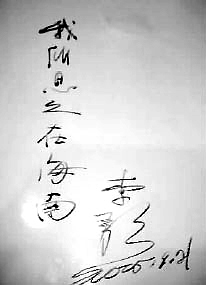 我所思之在海南
李
2020.4.21